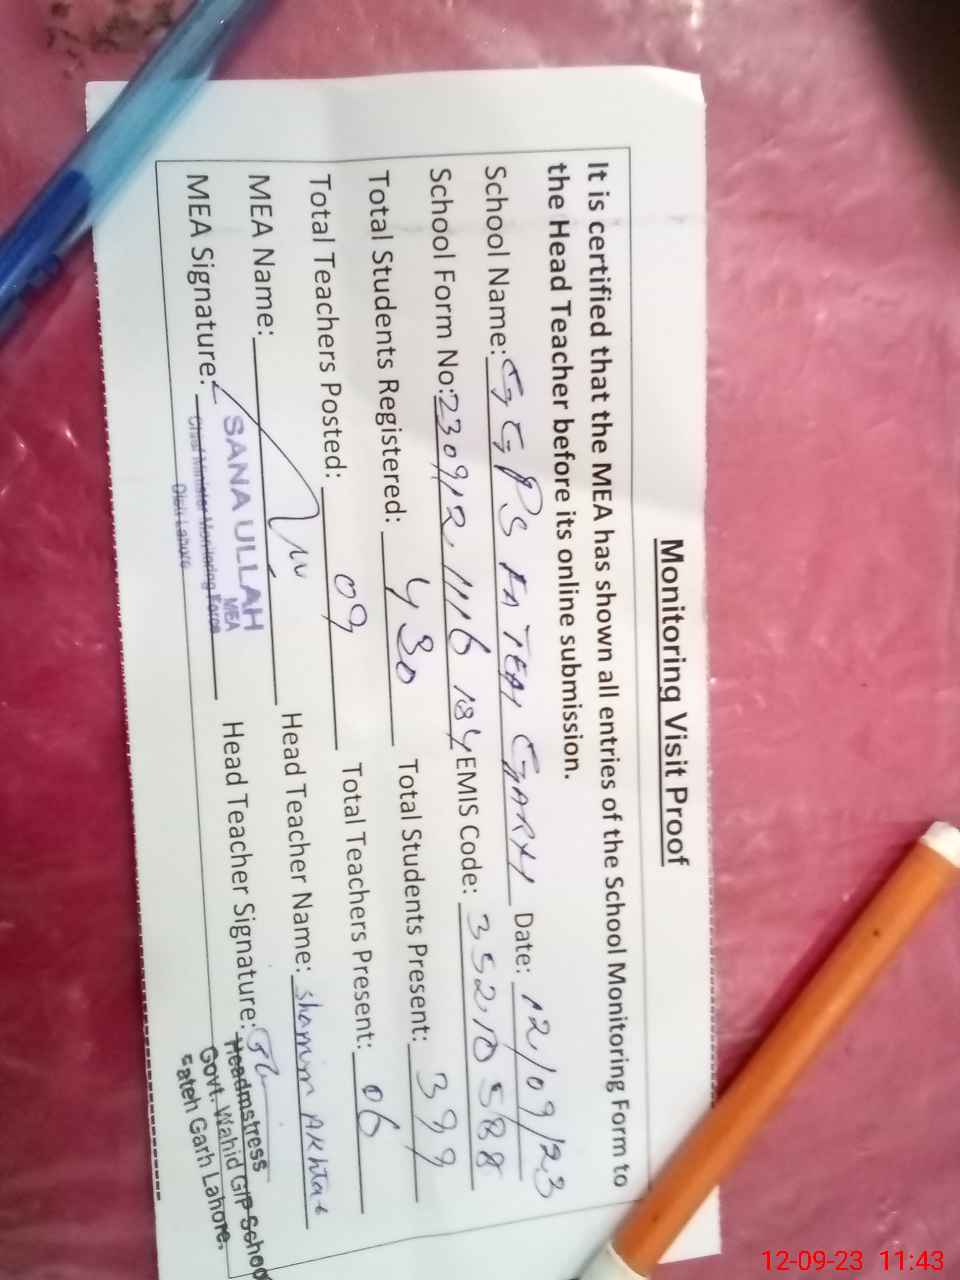 Monitoring Visit Proof
It is certified that the MEA has shown all entries of the School Monitoring Form to
the Head Teacher before its online submission.
School Name: GGPS FATEH GARH Date: 12/09/23
School Form No: 230912 1116 184 EMIS Code: 35210588
Total Students Registered: 430 Total Students Present: 399
Total Teachers Posted: 09 Total Teachers Present: 06
MEA Name: Head Teacher Name: Shamim Akhtar
MEA Signature: Head Teacher Signature:
SANA ULLAH
MEA
Chief Minister Monitoring Force
Distt Lahore
Headmstress
Govt. Wahid G/P School
Fateh Garh Lahore.
12-09-23 11:43